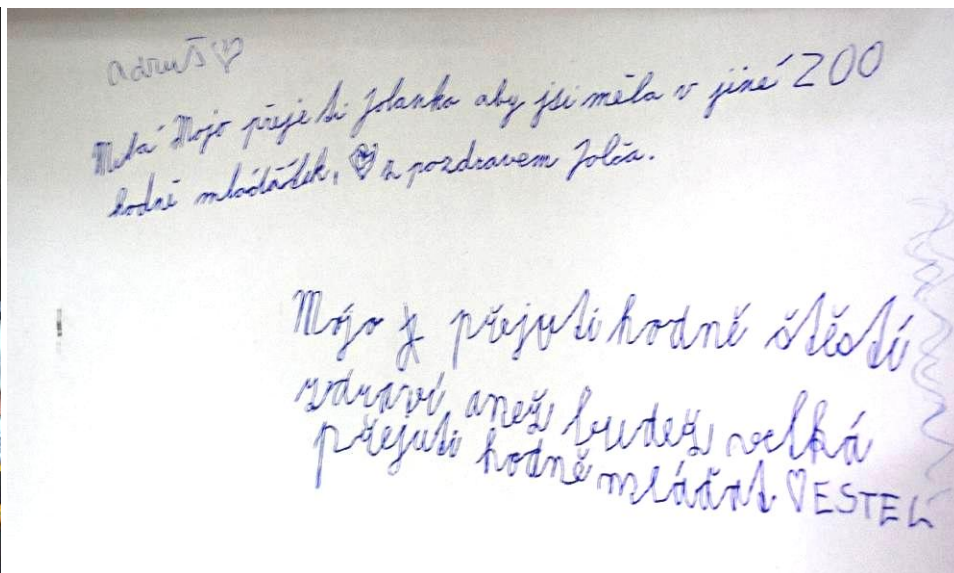 adruš
Milá Mojo přeje ti Jolanka aby jsi měla v jiné ZOO
hodně mláďátek, s pozdravem Jolča.
Mójo přejuti hodně štěstí
zdraví anež budeš velká
přejuti hodně mláďat ESTEL